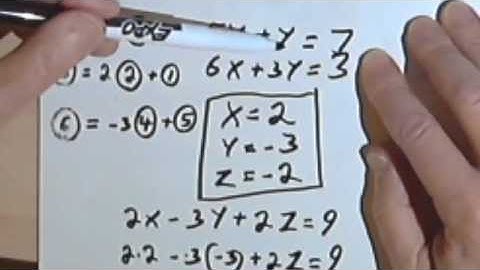 + Y = 7
) = 2 ② + ① 6X + 3Y = 3
⑥ = -3 ④ + ⑤
X = 2
Y = -3
Z = -2
2X - 3Y + 2Z = 9
2·2 - 3(-3) + 2Z = 9